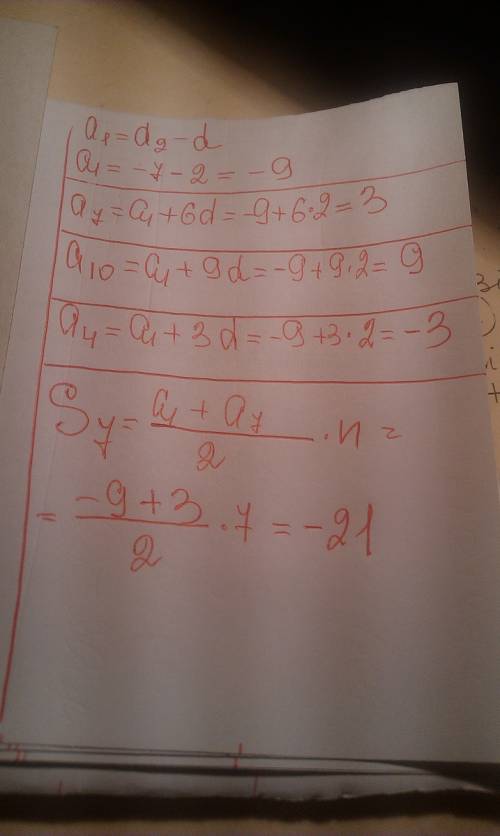 a₁ = a₂ - d
a₁ = -7 - 2 = -9
a₇ = a₁ + 6d = -9 + 6·2 = 3
a₁₀ = a₁ + 9d = -9 + 9·2 = 9
a₄ = a₁ + 3d = -9 + 3·2 = -3
S₇ = (a₁ + a₇)/2 · n =
= (-9 + 3)/2 · 7 = -21